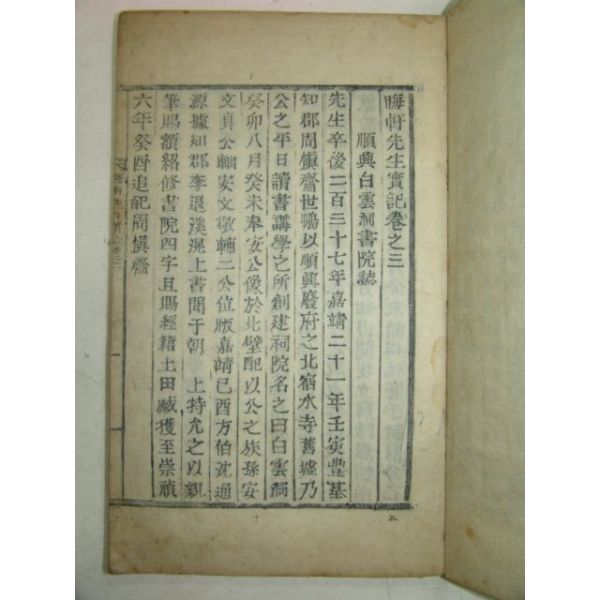 晦軒先生實記卷之三
順興白雲洞書院誌
先生卒後二百三十七年嘉靖二十一年壬寅豊基
知郡周愼齋世鵬以順興廢府之北宿水寺舊墟乃
公之平日讀書講學之所創建祠院名之曰白雲洞
癸卯八月癸未奉安公像於北壁配以公之族孫安
文貞公軸安文敬輔二公位版嘉靖己酉方伯沈通
源據知郡李退溪滉上書聞于朝 上特允之以親
筆賜額紹修書院四字且賜經籍土田臧獲至崇禎
六年癸酉追配周愼齋